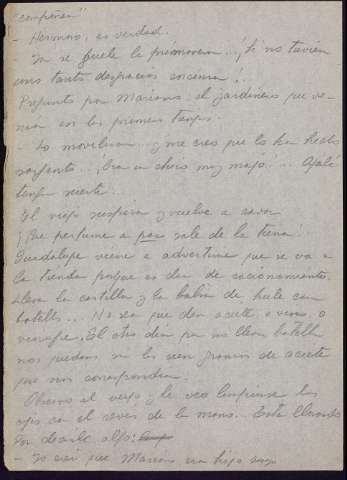 "compañera"
- Hermoso, es verdad.
- Ya se huele la primavera...¡Si no tuviéra
mos tanta desgracia encima!..
Pregunto por Mariano, el jardinero que ve
nía en los primeros tiempos.
- Lo movilizaron. ¡y me creo que lo han hecho
sargento...¡Era un chico muy majo!... Ojalá
tenga suerte..
El viejo suspira y vuelve a cavar.
¡Qué perfume a paz sale de la tierra!
Guadalupe viene a advertirme que se va a
la tienda porque es día de racionamiento.
Lleva la cartilla y la bolsa de hule con
botella... No sea que den aceite, o vino, o
vinagre. El otro día por no llevar botella
nos quedamos sin los cien gramos de aceite
que nos correspondían.
Observo al viejo y le veo limpiarse los
ojos con el revés de la mano. Está llorando
Por decirle algo:
- Yo creí que Mariano era hijo suyo